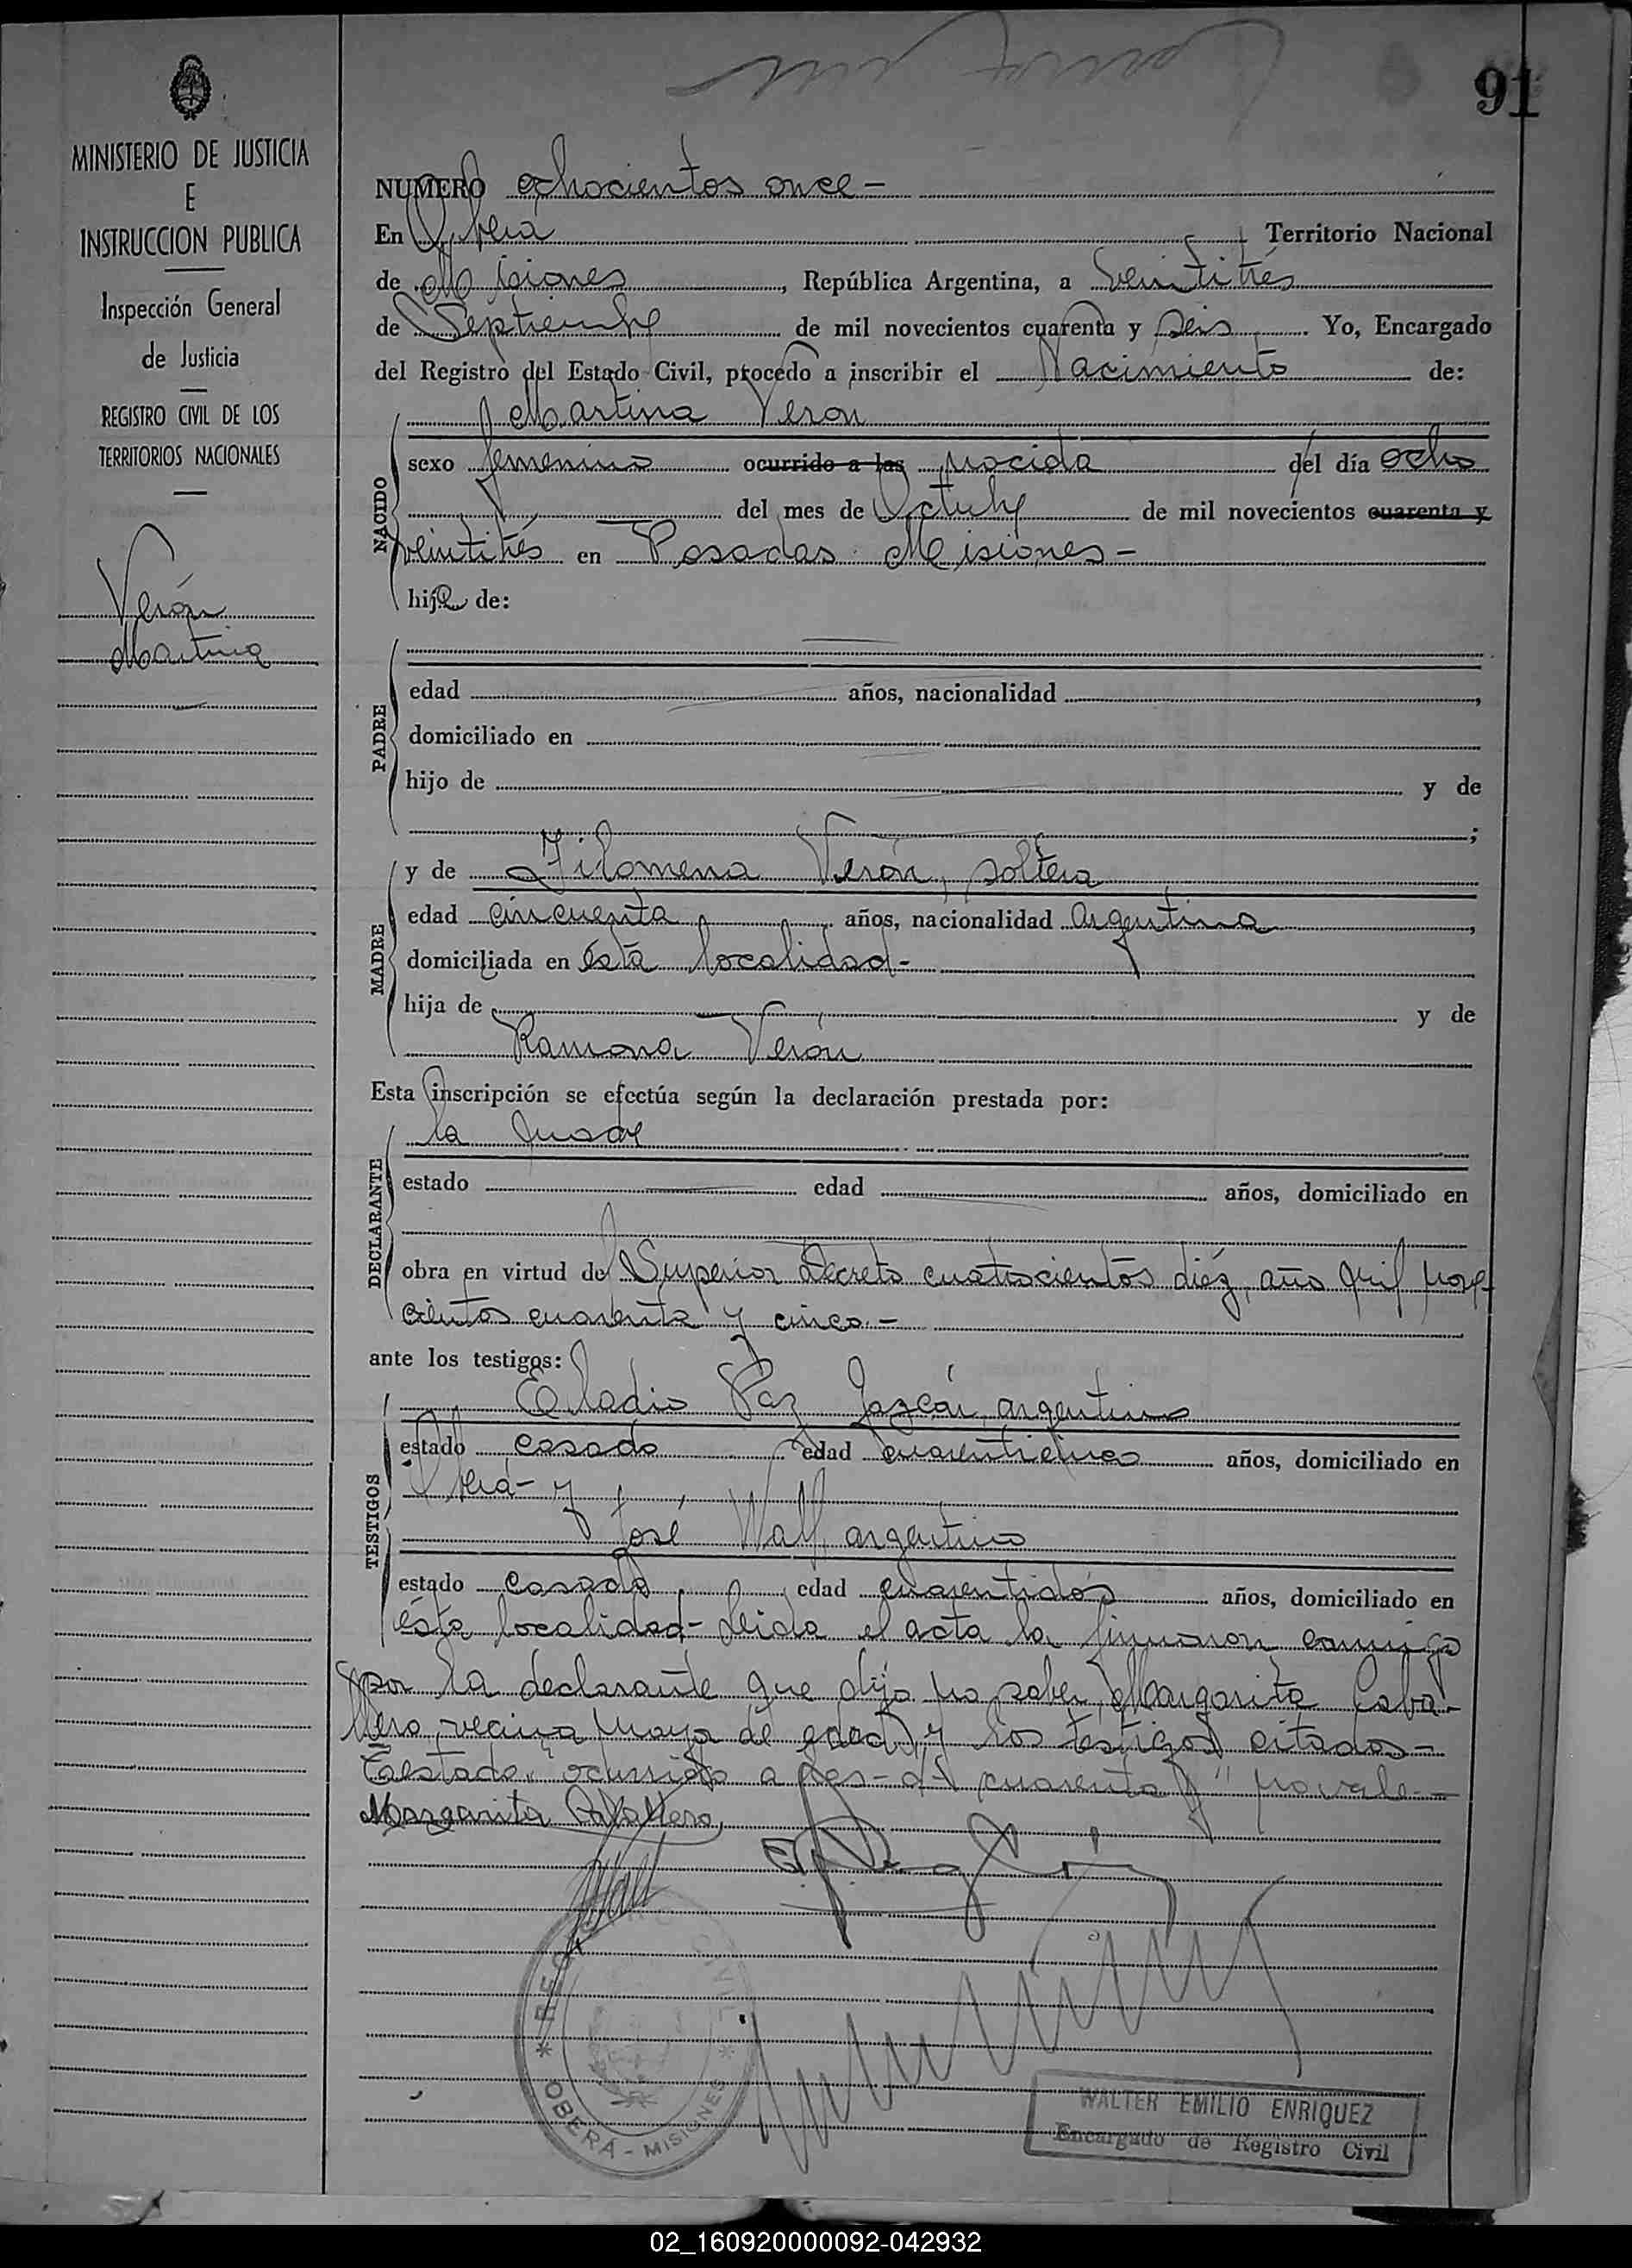 91
MINISTERIO DE JUSTICIA
E
INSTRUCCION PUBLICA
Inspección General
de Justicia
REGISTRO CIVIL DE LOS
TERRITORIOS NACIONALES
Verón
Martina
NUMERO ochocientos once -
En Oberá Territorio Nacional
de Misiones, República Argentina, a veintitrés
de Septiembre de mil novecientos cuarenta y seis. Yo, Encargado
del Registro del Estado Civil, procedo a inscribir el Nacimiento de:
NACIDO
Martina Veron
sexo femenino ocurrido a las nacida del día ocho
del mes de Octubre de mil novecientos cuarenta y
veintitrés en Posadas Misiones -
hija de:
PADRE
edad años, nacionalidad ,
domiciliado en
hijo de y de
;
MADRE
y de Filomena Verón, soltera
edad cincuenta años, nacionalidad argentina,
domiciliada en ésta localidad -
hija de y de
Ramona Verón
Esta inscripción se efectúa según la declaración prestada por:
DECLARANTE
la madre
estado edad años, domiciliado en
obra en virtud de Superior Decreto cuatrocientos diéz, año mil nove-
cientos cuarenta y cinco. -
ante los testigos:
TESTIGOS
Eladio Paz argentino
estado casado edad cuarenticinco años, domiciliado en
Oberá - y
José Wall argentino
estado casado edad cuarentidós años, domiciliado en
ésta localidad - Leida el acta la firmaron conmigo
por la declarante que dijo no saber, Margarita Caba-
llero, vecina mayor de edad y los testigos citados -
Testado "ocurrido a las - cuarenta y" no vale -
Margarita Caballero
Wall
REG CIVIL
* OBERÁ - MISIONES *
WALTER EMILIO ENRIQUEZ
Encargado de Registro Civil
02_160920000092-042932